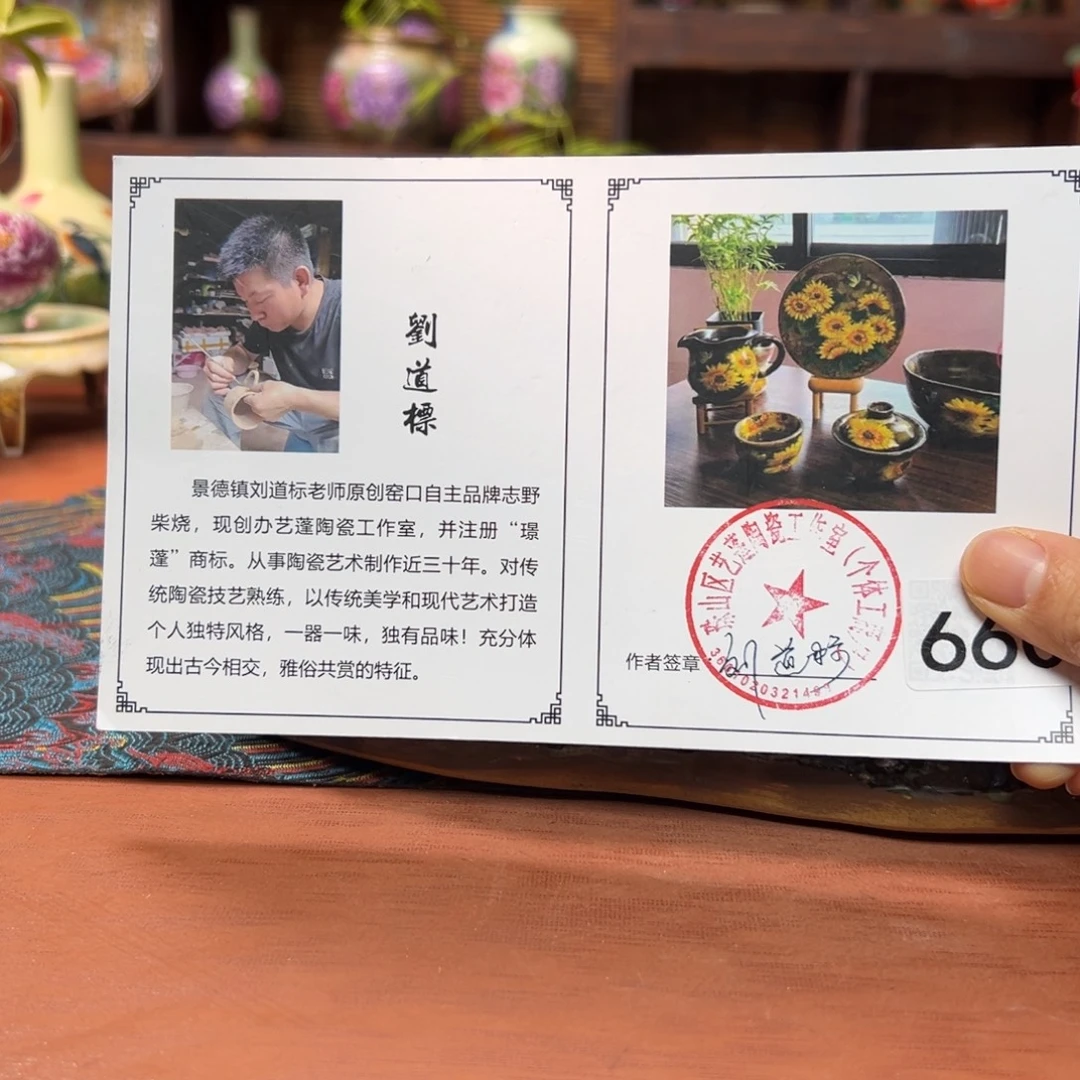 劉道標
景德镇刘道标老师原创窑口自主品牌志野
柴烧，现创办艺蓬陶瓷工作室，并注册“璟
蓬”商标。从事陶瓷艺术制作近三十年。对传
统陶瓷技艺熟练，以传统美学和现代艺术打造
个人独特风格，一器一味，独有品味！充分体
现出古今相交，雅俗共赏的特征。
作者签章：刘道标